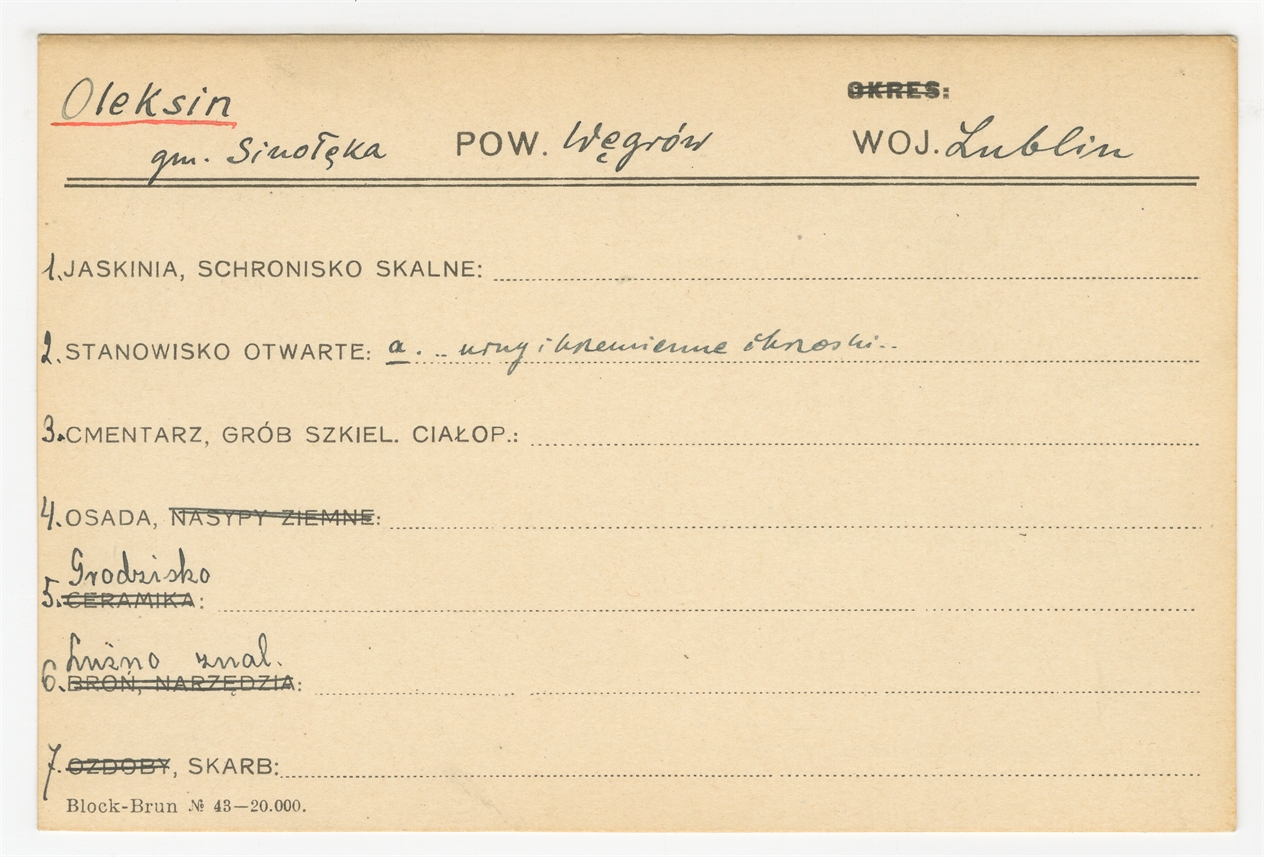 Oleksin OKRES:
gm. Sinołęka POW. Węgrów WOJ. Lublin
1. JASKINIA, SCHRONISKO SKALNE:
2. STANOWISKO OTWARTE: a. krzemienne
3. CMENTARZ, GRÓB SZKIEL. CIAŁOP.:
4. OSADA, NASYPY ZIEMNE:
Grodzisko
5. CERAMIKA:
Luźno znal.
6. BROŃ, NARZĘDZIA:
7. OZDOBY, SKARB:
Block-Brun № 43—20.000.